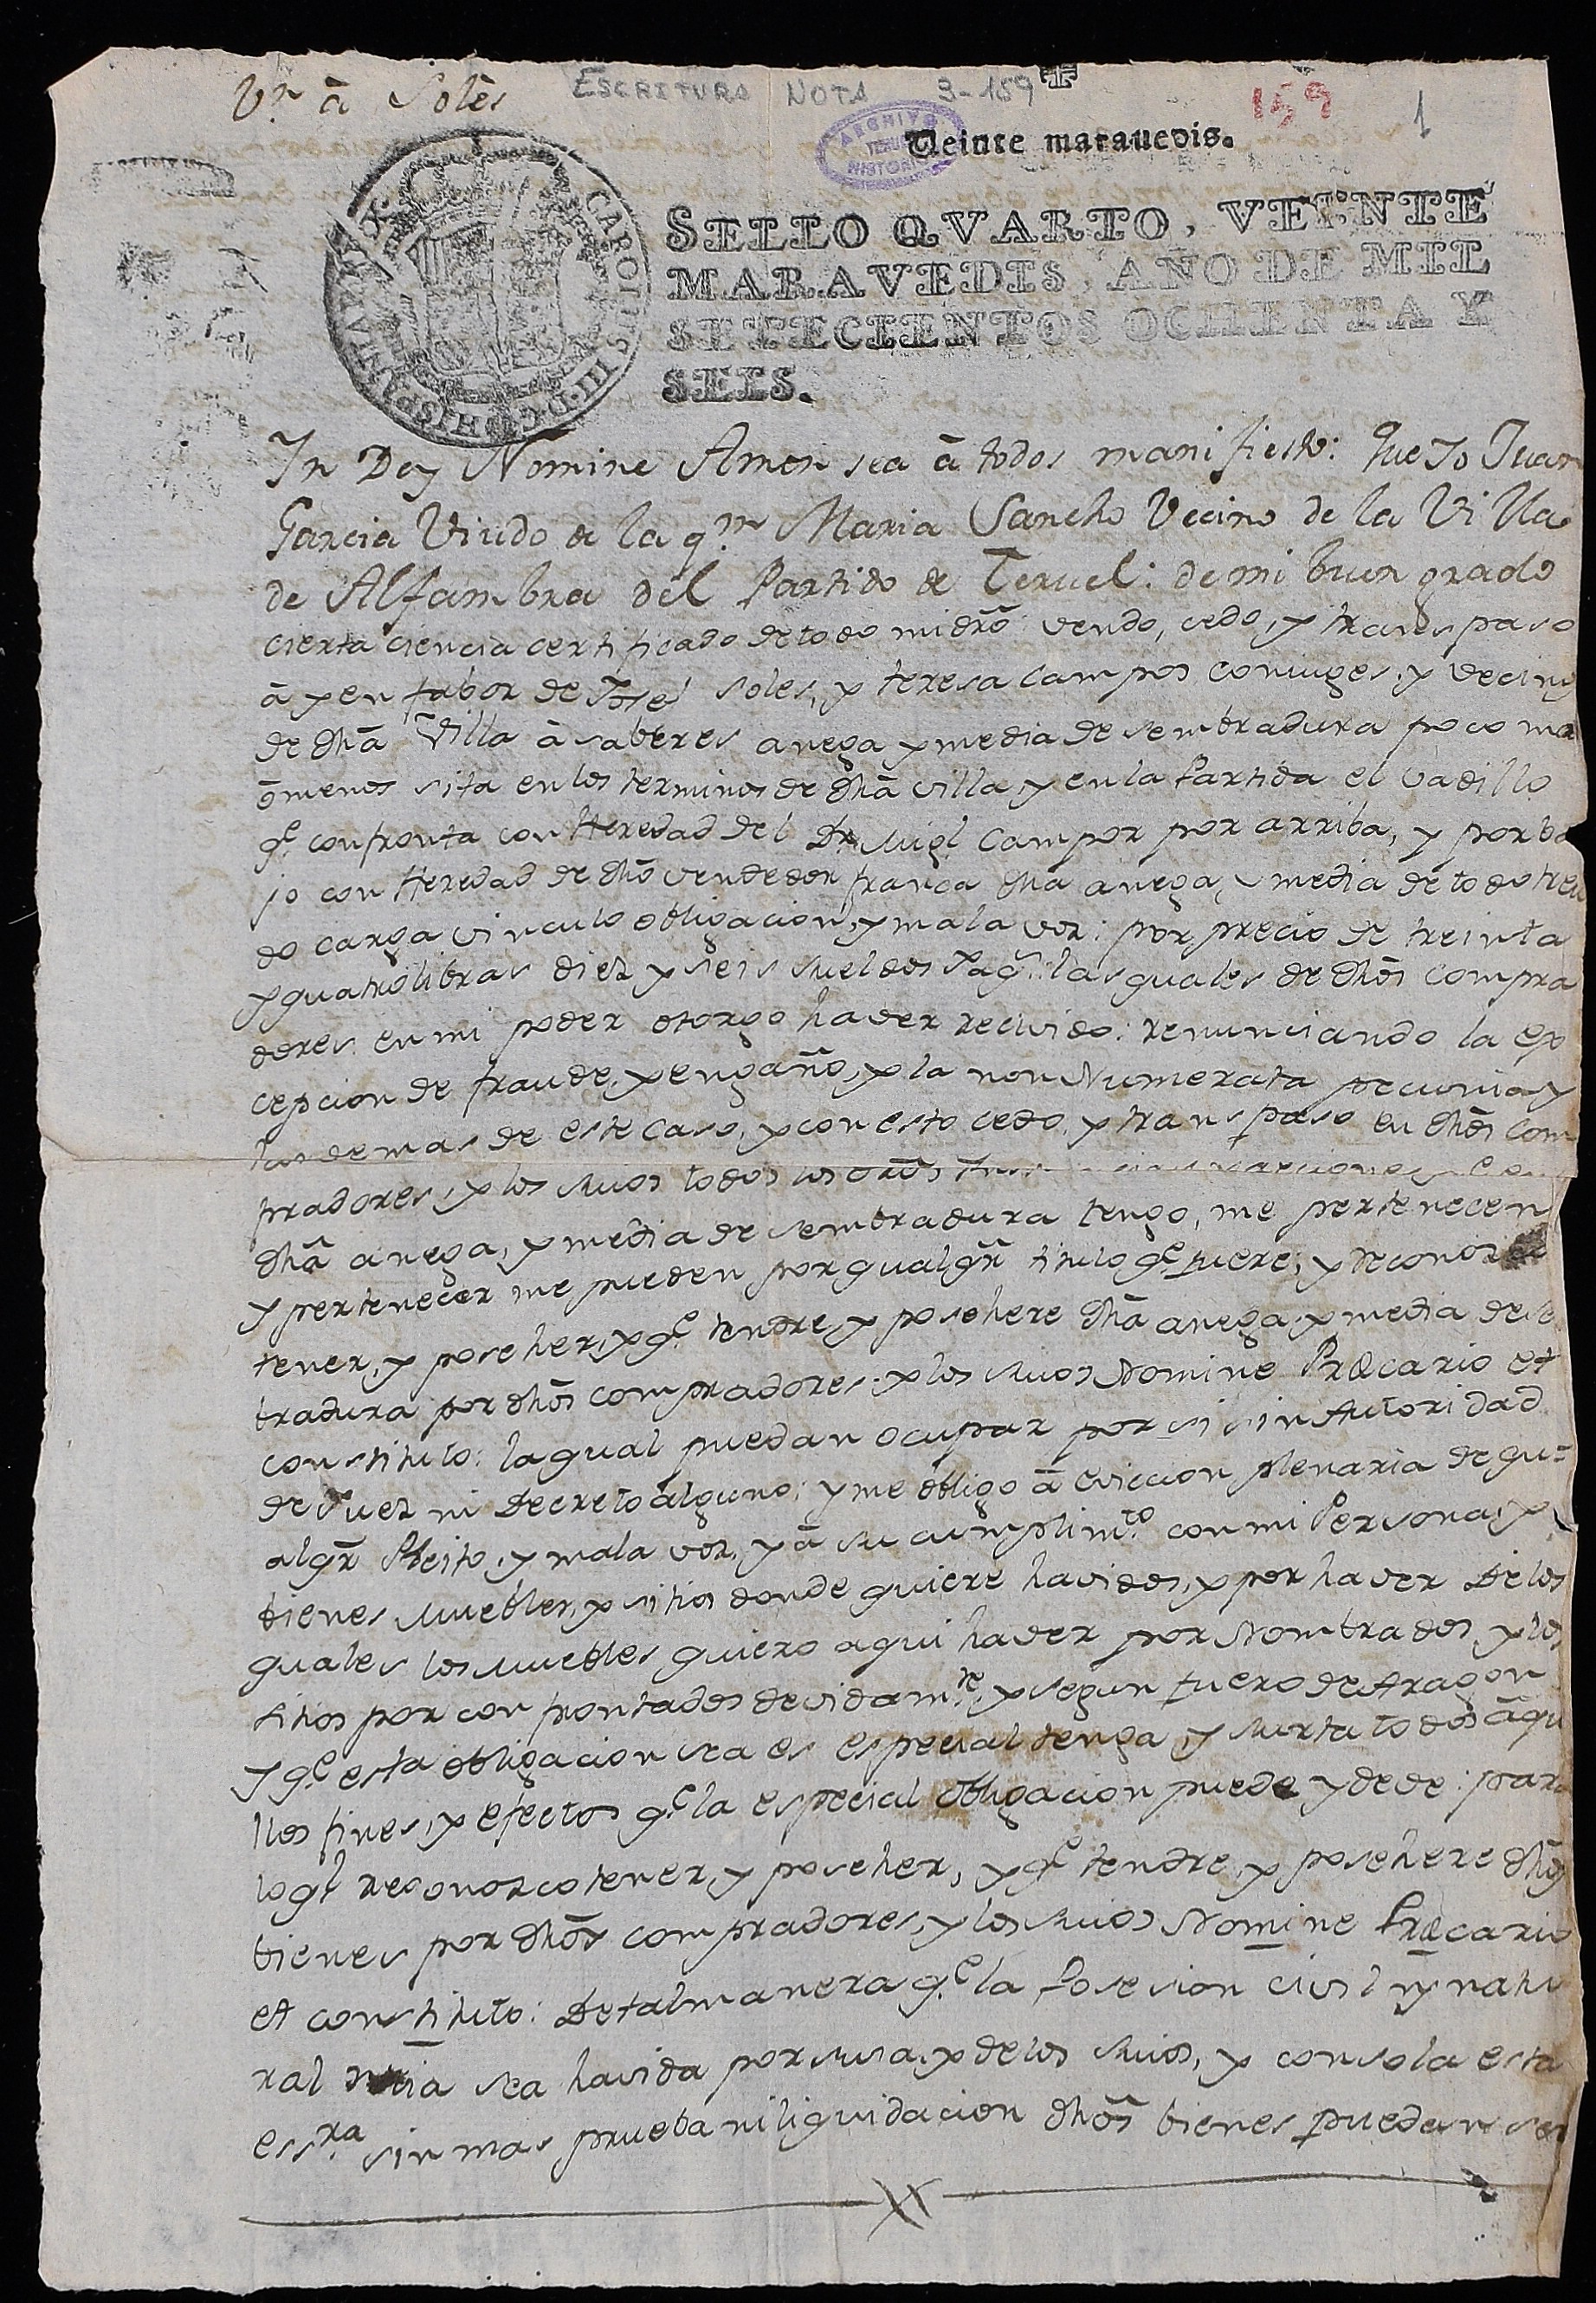 Vn. à Solès
ESCRITURA NOTA 3-159
159
1
ARCHIVO HISTORICO TERUEL
Veinte marauedis.
CAROLUS III D G HISPANIAR REX
SELLO QVARTO, VEINTE
MARAVEDIS, AÑO DE MIL
SETECIENTOS OCHENTA Y
SEIS.
In Dey Nomine Amen sea à todos manifiesto: Que Yo Juan
Garcia Viudo de la qm. Maria Sancho Vecino de la Villa
de Alfambra del Partido de Teruel: de mi buen grado
cierta ciencia certificado de todo mi dro vendo, cedo, y transpaso
à y en fabor de Josef Soles, y teresa campos coniuges, y vecinos
de dha Villa à saber es anega y media de sembradura poco mas
ò menos sita en los terminos de dha villa y en la Partida el vadillo
qe. confronta con Heredad del Dr. Migl. Campos por arriba, y por ba
jo con Heredad de dho vendedor franca dha anega, y media de todo treu
do carga vinculo obligacion, y mala voz: por precio de treinta
y quatro libras diez y seis sueldos Jaqs. las quales de dhos compra
dores en mi poder otorgo haver recivido: renunciando la ex
cepcion de fraude, y engaño, y la non Numerata pecunia y
las demas de este caso, y con esto cedo, y transpaso en dhos com
pradores, y los suios todos los dros,
dha anega, y media de sembradura tengo, me pertenecen
y pertenecer me pueden por qualqr. titulo qe. fuere; y reconozco
tener, y poseher, y qe. tendre, y posehere dha anega, y media de se
bradura por dhos compradores. y los suios Nomine Præcario et
constituto: la qual puedan ocupar por si sin Autoridad
de Juez ni Decreto alguno; y me obligo à eviccion plenaria de qu=
alqr. Pleito, y mala voz, y à su cumplimto. con mi Persona, y
bienes Muebles, y sitios donde quiere havidos, y por haver De los
quales los Muebles quiero aqui haver por Nombrados, y los
sitios por confrontados devidamte. y segun fuero de Aragon
Y qe. esta obligacion sea es especial tenga, y surta todos aqu
llos fines, y efectos qe. la especial obligacion puede y deve: para
lo ql. reconozco tener, y poseher, y qe. tendre, y posehere dhos
bienes por dhos compradores, y los suios Nomine Præcario
et constituto: De tal manera qe. la Posesion civil y natu
ral mia sea havida por suia, y de los suios, y con sola esta
essra. sin mas prueba ni liquidacion dhos bienes puedan ser